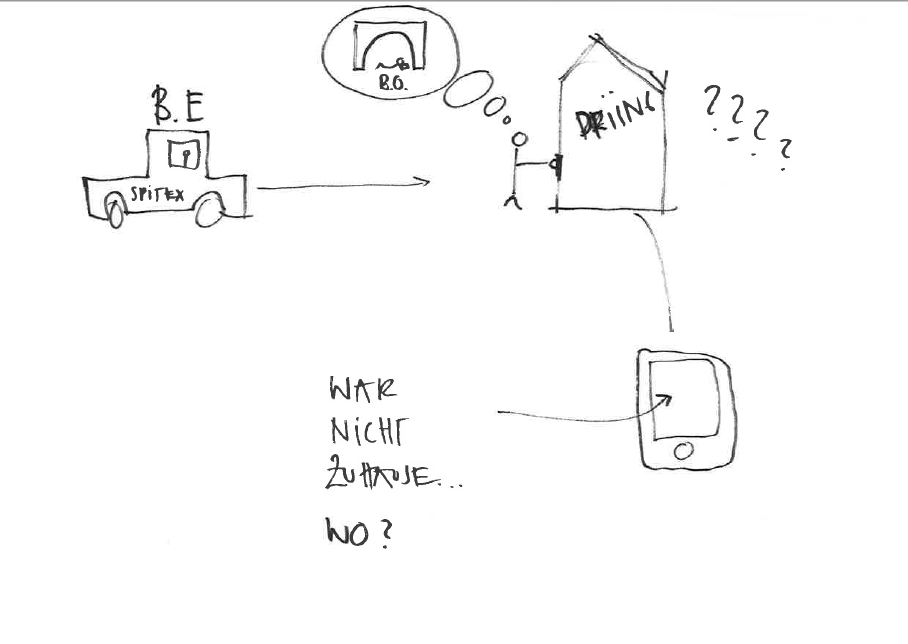 B.O.
B.E
SPiTEX
DRÏING
? ? ? ?
WAR
NiCHT
ZUHAUSE...
WO?